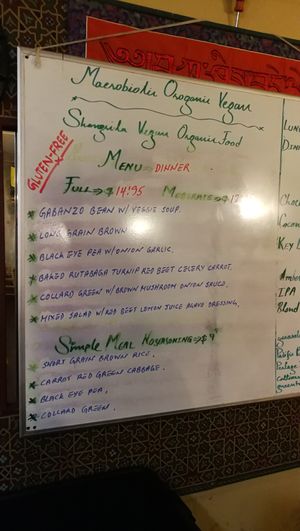 Macrobiotic Oroganic Vegan
Shangrila Vegan Organic Food
GLUTEN-FREE
MENU DINNER
FULL $14.95 MODERATE $12
GABANZO BEAN W/ VEGGIE SOUP.
LONG GRAIN BROWN
BLACK EYE PEA W/ ONION GARLIC.
BAKED RUTABAGA TURNIP RED BEET CELERY CARROT.
COLLARD GREEN W/ BROWN MUSHROOM ONION SAUCE.
MIXED SALAD W/ RED BEET LEMON JUICE AGAVE DRESSING,
Simple MEAL
SHORT GRAIN BROWN RICE,
CARROT RED GREEN CABBAGE.
BLACK EYE PEA,
COLLARD GREEN.
LUN
DINN
Choc
Coconu
KEY L
Amber
IPA
Blond